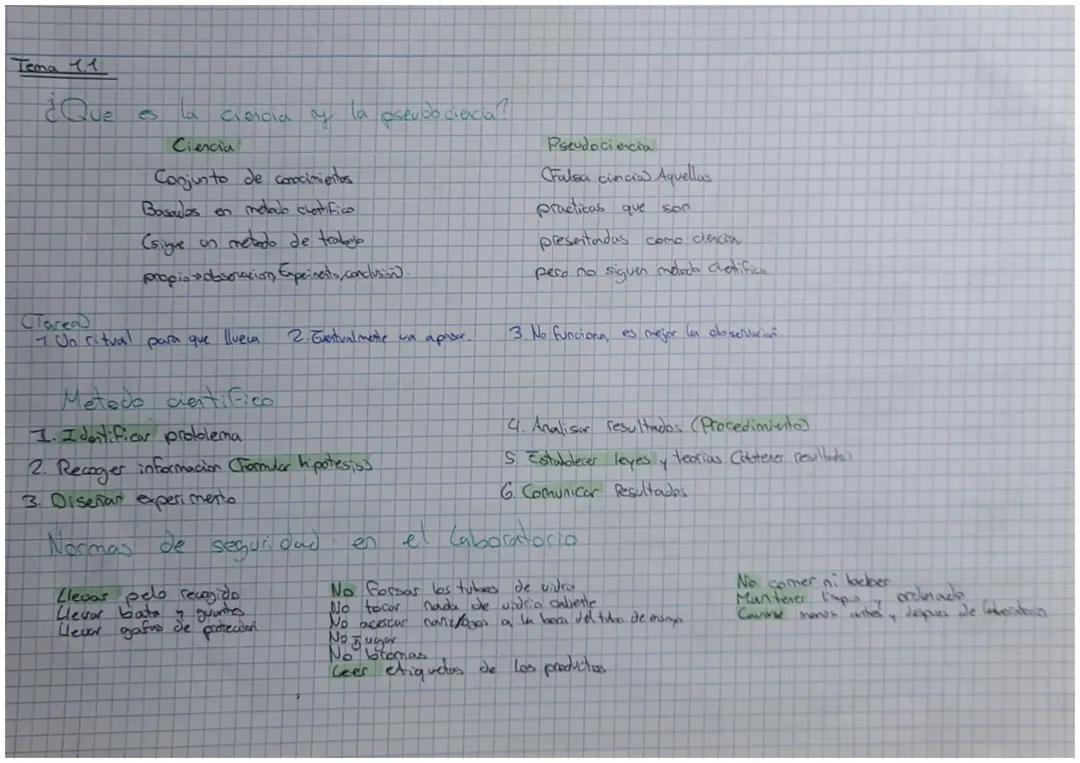 Tema 1.1
¿Que es la ciencia y la pseudociencia?
Ciencia
Conjunto de conocimientos
Basados en metodo cientifico
(sigue un metodo de trabajo
propio→observacion, Experimento, conclusión).
Pseudociencia
(Falsa ciencia) Aquellas
practicas que son
presentadas como ciencia
pero no siguen metodo cientifico
(Tarea)
1 Un ritual para que llueva 2. Eventualmente va a pasar. 3. No funciona, es mejor la observación
Metodo cientifico
1. Identificar problema
2. Recoger informacion (Formular hipotesis)
3. Diseñar experimento
4. Analisar resultados (Procedimiento)
5. Establecer leyes y teorias (obtener resultado)
6. Comunicar Resultados
Normas de seguridad en el Laboratorio
Llevar pelo recogido
Llevar bata y guantes
Llevar gafas de proteccion
No forsar los tubos de vidrio
No tocar nada de vidrio caliente
No acercar a la boca del tubo de ensayo
No Jugar
No bromas
Leer etiquetas de los productos
No comer ni beber
Mantener limpio y ordenado
manos antes y despues de Laboratorio